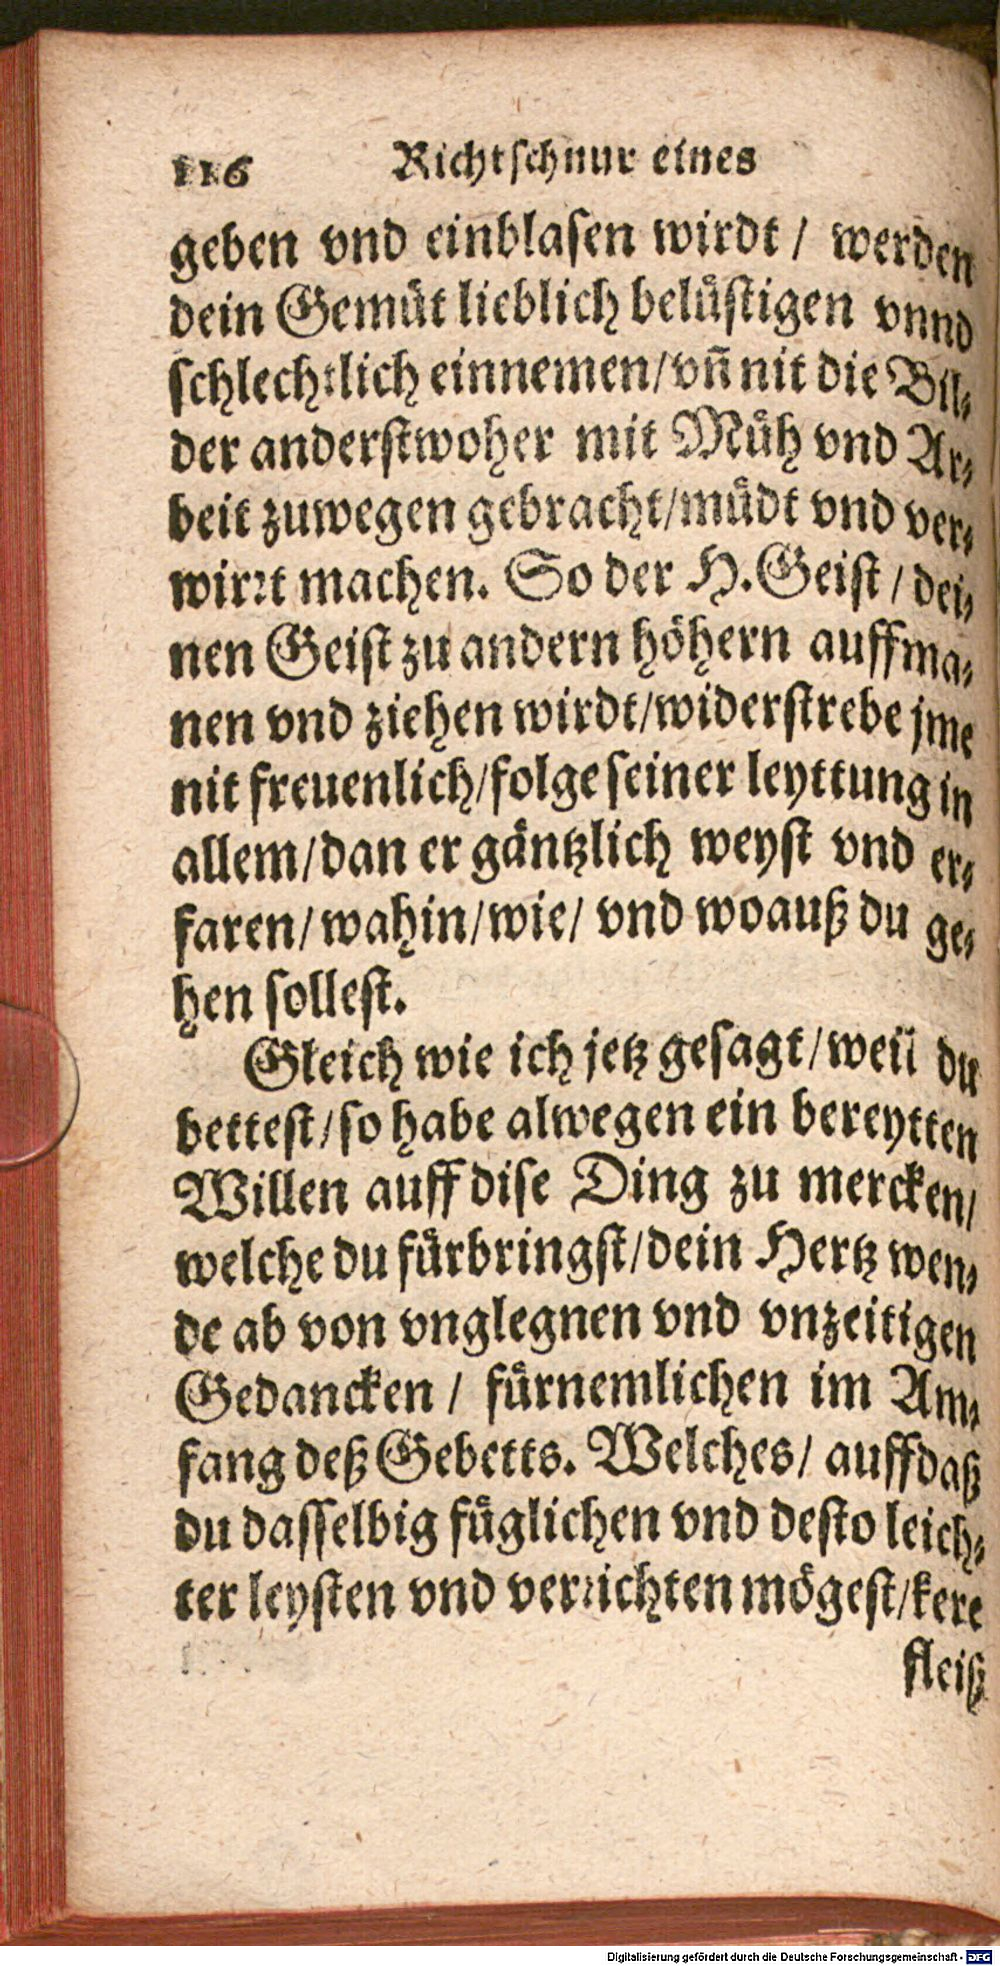 116 Richtschnur eines
geben vnd einblasen wirdt / werden
dein Gemuͤt lieblich beluͤstigen vnnd
schlechtlich einnemen/vñ nit die Bil⸗
der anderstwoher mit Muͤh vnd Ar⸗
beit zuwegen gebracht/muͤdt vnd ver⸗
wirꝛt machen. So der H. Geist / dei⸗
nen Geist zu andern hoͤhern auffma⸗
nen vnd ziehen wirdt/widerstrebe jme
nit freuenlich/folge seiner leyttung in
allem/dan er gaͤntzlich weyst vnd er⸗
faren/wahin/wie/ vnd woauß du ge⸗
hen sollest.
Gleich wie ich jetz gesagt/weil du
bettest/so habe alwegen ein bereytten
Willen auff dise Ding zu mercken/
welche du fuͤrbringst/dein Hertz wen⸗
de ab von vnglegnen vnd vnzeitigen
Gedancken / fuͤrnemlichen im Am⸗
fang deß Gebetts. Welches/ auffdaß
du dasselbig fuͤglichen vnd desto leich⸗
ter leysten vnd verꝛichten moͤgest/kere
fleiß
Digitalisierung gefördert durch die Deutsche Forschungsgemeinschaft - DFG